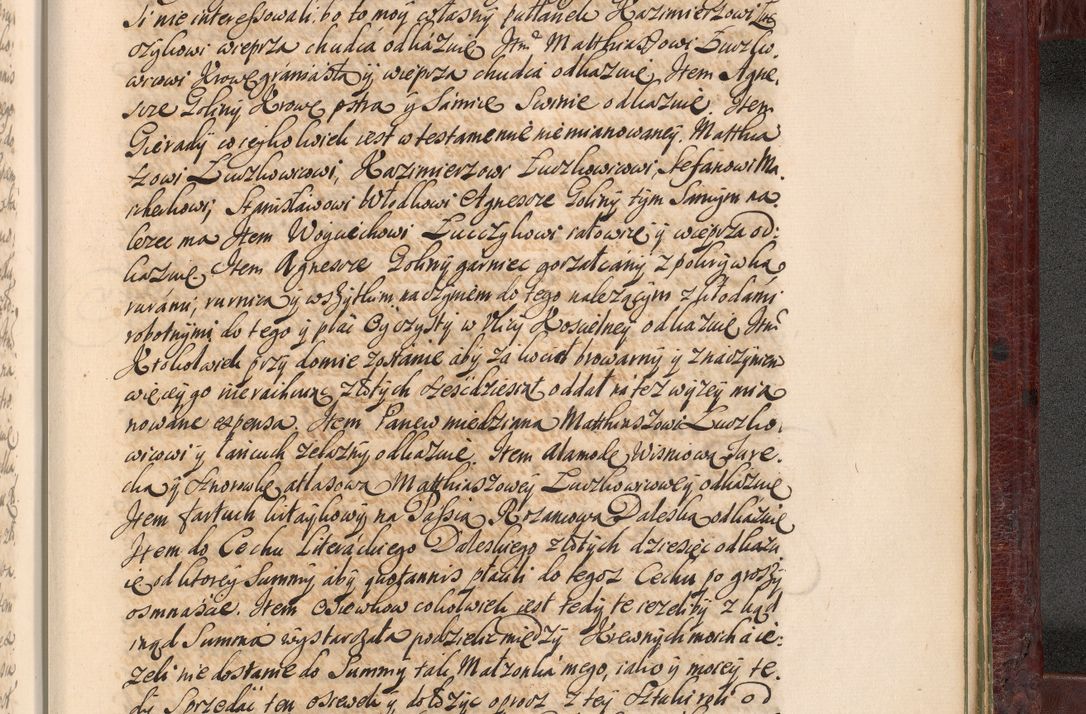 Ji nie interessowali, bo to moy własny futlanek Kazimierzowi Łu
czykowi wieprza chudca odkazuię, Itm̃ Matthiaszowi Łuczko
wicowi Krowę graniastą y wieprza chudca odkazuię, Item Agne,
szce Goliny Krowę pstrą y Samicę Swinię odkazuię. Item
Gierady co szykolwiek iest w testamencie nie mianowaney, Matthia
szowi Łuczkowicowi, Kazimierzowi Łuczkowicowi, Stefanowi Ma,
chelkowi, Stanisławowi Włodkowi Agneszce Goliny tym samym na,
lezec ma Item Woyciechowi Łuczykowi iałowicę y wieprza od:
kazuię. Item Agneszce Goliny garniec gorzałczany z pokrywką
rurami, rurnicą y wszytkim naczyniem do tego nalezącym z słodami
robotnymi do tego y plac Oyczysty w Ulicy Koscielney odkazuię Itm̃
Ktokolwiek przy domie zostanie aby za kocieł browarny y z naczyniem
więcey go nie rachuiąc złotych czescdziesiąt oddał na też wyzey mia
nowane expensa. Item Panew miedziana Matthiaszowi Łuczko,
wicowi y łancuch zelazny odkazuię Item Alamodę Wisniową Jure,
cką y sznorowkę atłasową Matthiaszowey Łuczkowicowey odkazuię
Item fartuch kitaykowy na Passią Rozancową Daleską odkazuię
Item do Cechu Literackiego Daleskiego złotych dziesięc odkazu
ię od ktorey Summy aby quotannis płacili do tegoż Cechu po groszy
osmnascie. Item Osiewkow cokolwiek iest tedy te iezeliby z kąd
inąd Summa wystarczała podzielic między Krewnych moich a ie:
zeli nie dostanie do Summy tak Małzonka mego, iako y moiey te,
dy Sprzedac ten osiewek y dołozyc oprocz z tey sztuki roli od